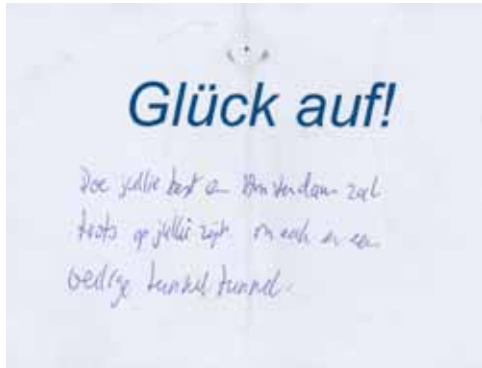 Glück auf!
Doe jullie best en Amsterdam zal
trots op jullie zijn en een
veilige tunnel tunnel.